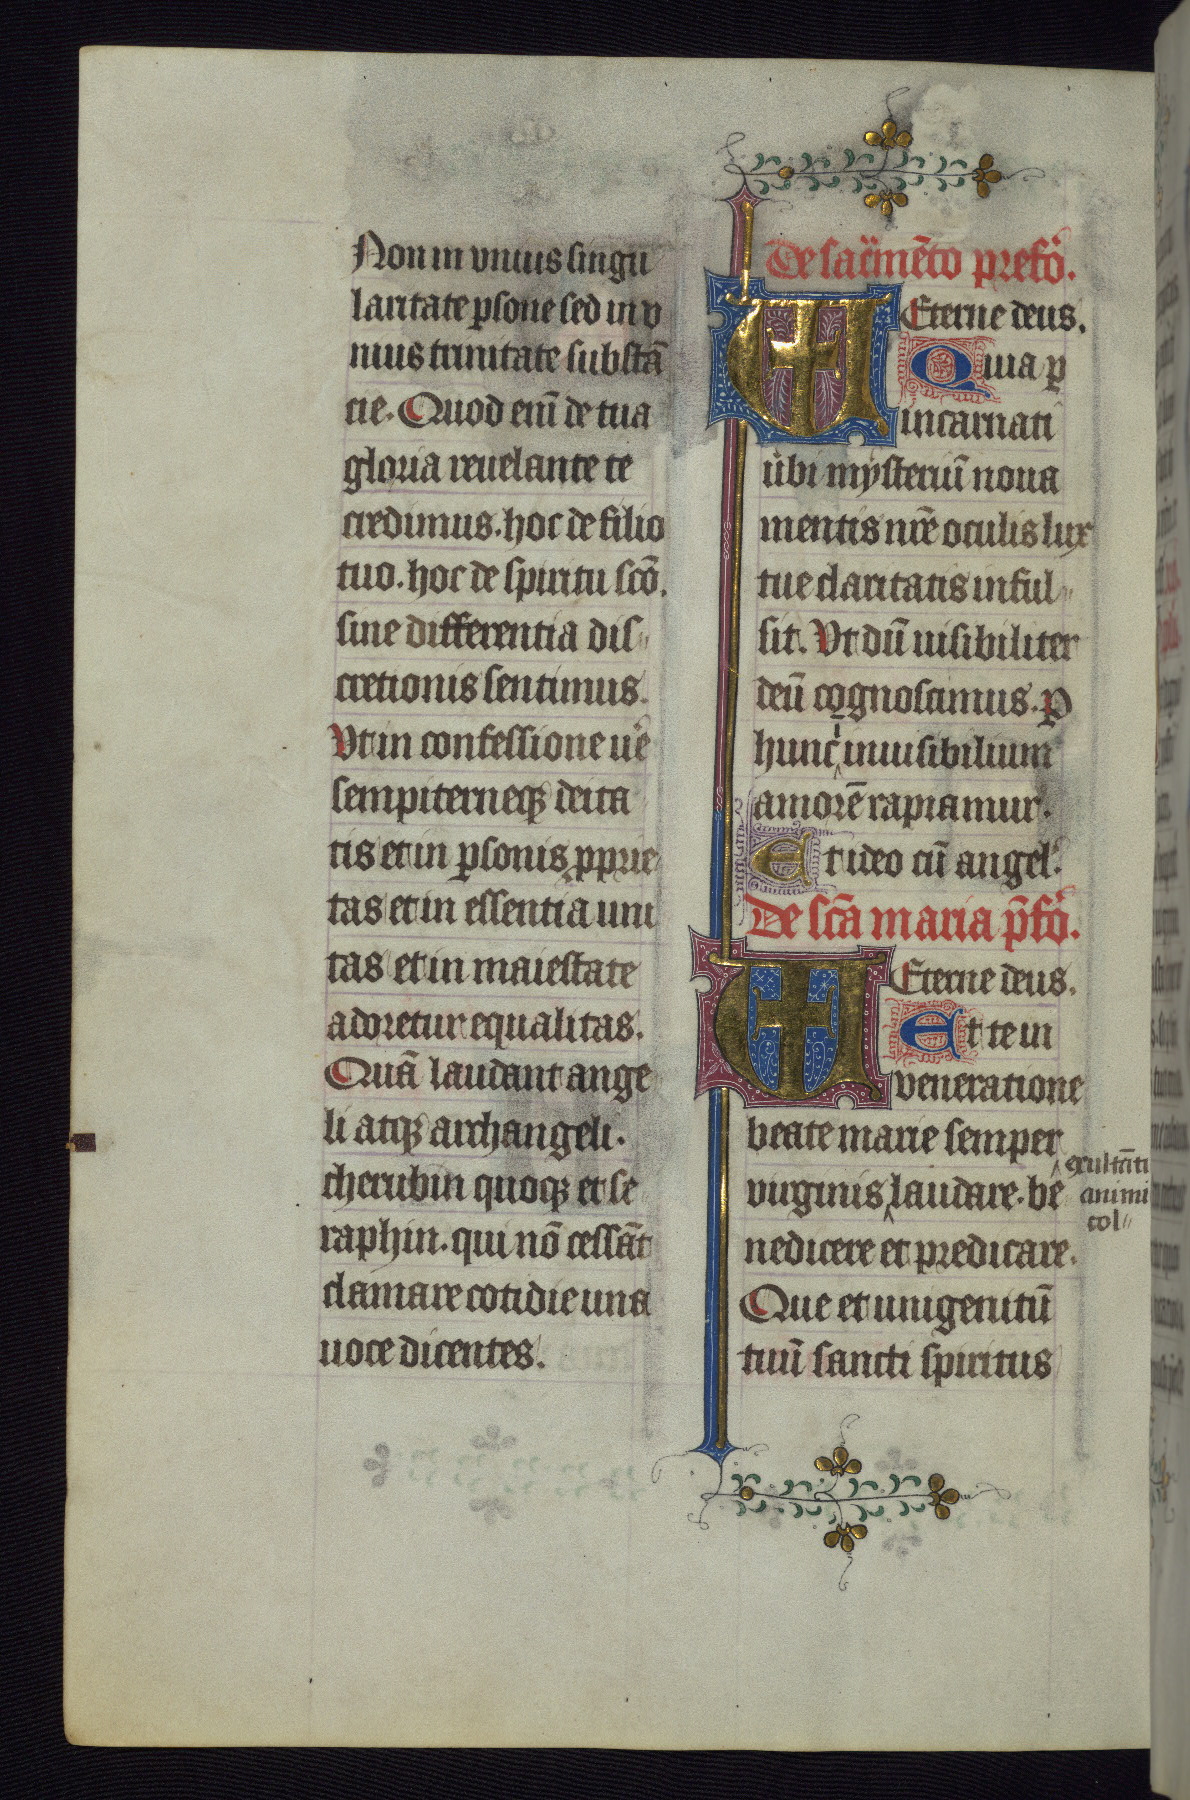 Non in vnius singu
laritate ꝑsone sed in v
nius trinitate substā
cie. Quod enī de tua
gloria reuelante te
credimus. hoc de filio
tuo. hoc de spiritu scō.
sine differentia dis
cretionis sentimus.
Vt in confessione ue
sempiterneqꝫ deita
tis et in ꝑsonis ꝓprie
tas et in essentia uni
tas et in maiestate
adoretur equalitas.
Quā laudant ange
li atqꝫ archangeli.
cherubin quoqꝫ et se
raphin. qui nō cessāt
clamare cotidie una
uoce dicentes.
De sacmēto prefo.
Eterne deus.
Quia ꝑ
incarnati
ubi mysteriū noua
mentis nre oculis lux
tue claritatis inful
sit. Vt dū uisibiliter
deū cognoscimus. ꝑ
hunc inuisibilium
amorē rapiamur.
Et ideo cū angel.
De scā maria p̄fo.
Eterne deus.
Et te in
ueneratione
beate marie semper
uirginis laudare. be
exultāti
animi
col
nedicere et predicare.
Que et unigenitū
tuū sancti spiritus